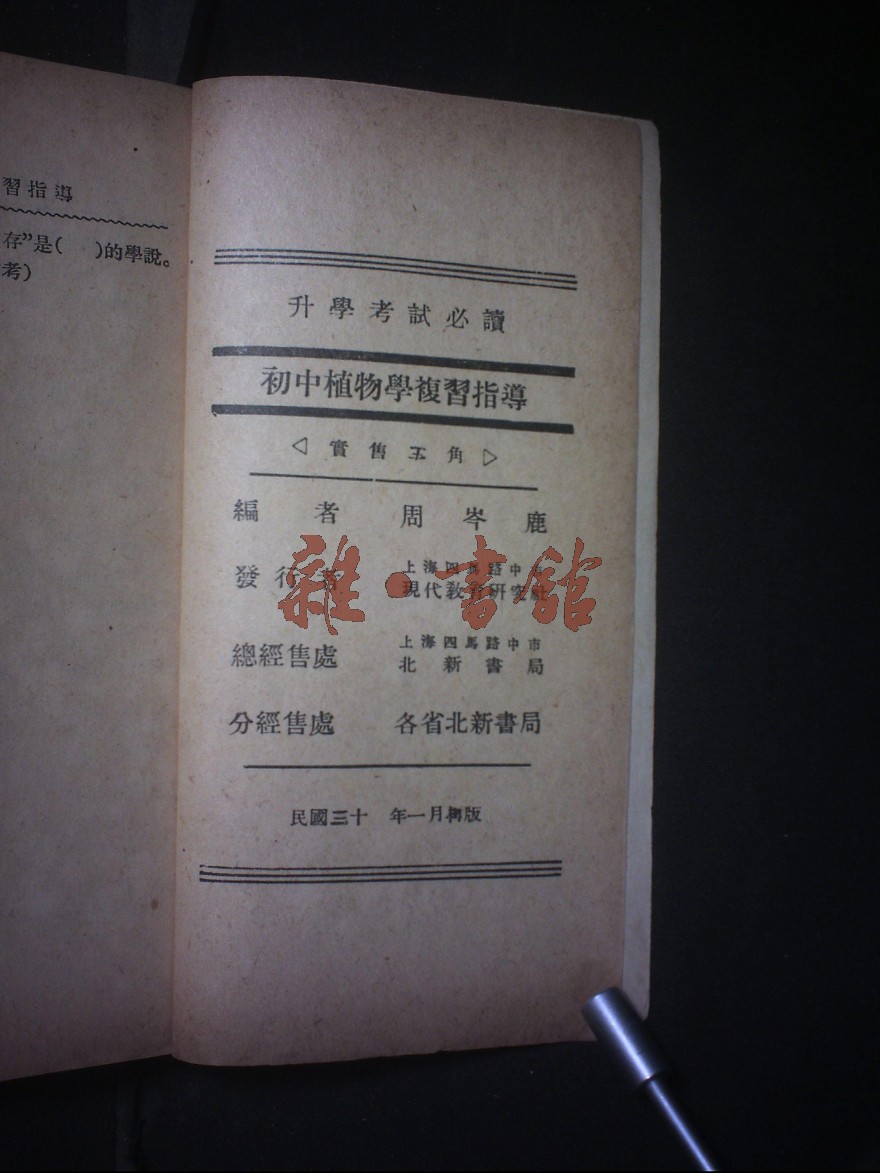 習指導
存”是(　　)的學說。
考)
升學考試必讀
初中植物學複習指導
◁實售五角▷
編者　周岑鹿
發行者　上海四馬路中市
現代教育研究社
總經售處　上海四馬路中市
北新書局
分經售處　各省北新書局
民國三十　年一月初版
雜·書館